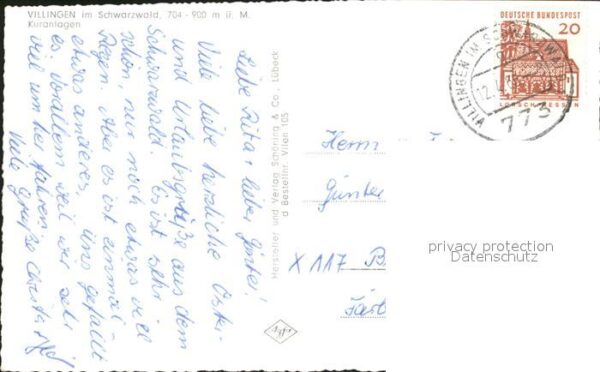 VILLINGEN im Schwarzwald, 704 - 900 m ü. M.
Kuranlagen
Liebe Rita, lieber Günter!
Viele liebe herzliche Oster-
und Urlaubsgrüße aus dem
Schwarzwald. Es ist sehr
schön, nur noch etwas viel
Regen. Aber es ist einmal
etwas anderes, uns gefällt
es vorallem weil wir sehr
viel um her fahren.
Viele Grüße
Hersteller und Verlag Schöning & Co., Lübeck
Bestellnr. Villen 105
Agfa
DEUTSCHE BUNDESPOST
20
LORSCH HESSEN
VILLINGEN IM SCHWARZWALD
12.4.
773
Herrn
Günter
X 117 B
privacy protection
Datenschutz